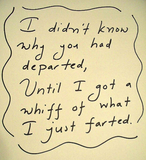 I didn't know
why you had
departed,
Until I got a
whiff of what
I just farted.